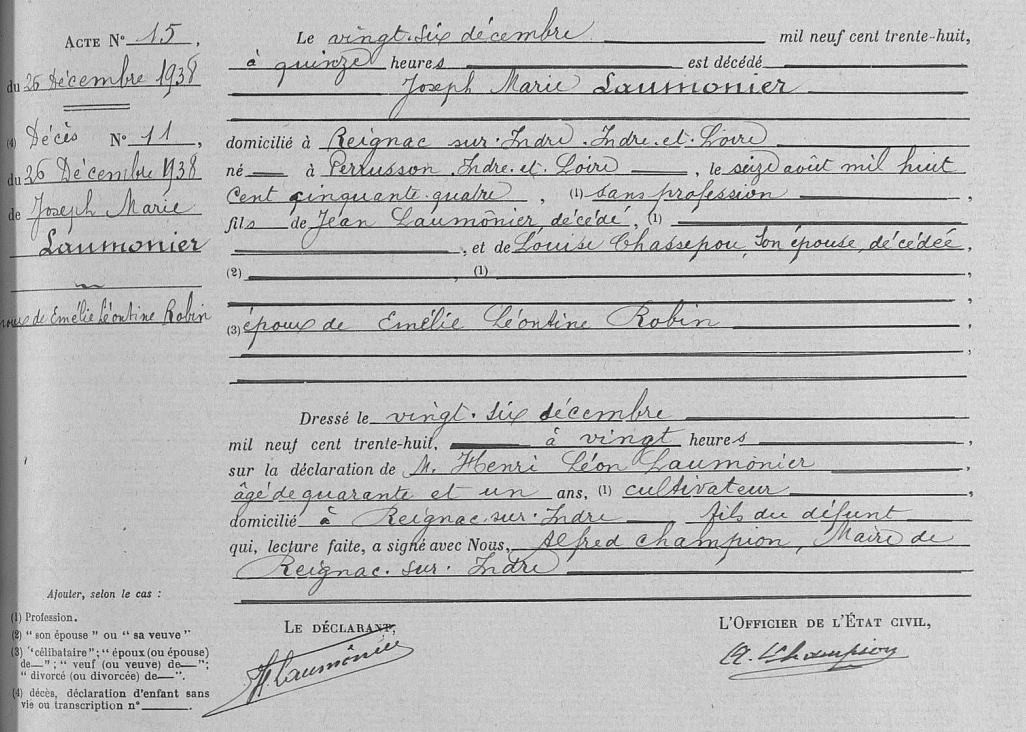 ACTE N° 15,
du 26 Décembre 1938
(4) Décès N° 11,
du 26 Décembre 1938
de Joseph Marie
Laumonier
époux de Emélie Léontine Robin
Le vingt-six décembre mil neuf cent trente-huit,
à quinze heures est décédé
Joseph Marie Laumonier
domicilié à Reignac sur-Indre. Indre-et-Loire
né à Perrusson, Indre-et-Loire, le seize août mil huit
cent cinquante-quatre, (1) sans profession
fils de Jean Laumônier décédé, (1)
, et de Louise Chassepou, son épouse, décédée,
(2) , (1) ,
,
(3) époux de Emélie Léontine Robin ,
,
,
Dressé le vingt-six décembre
mil neuf cent trente-huit, à vingt heures ,
sur la déclaration de M. Henri Léon Laumônier ,
âgé de quarante et un ans, (1) cultivateur ,
domicilié à Reignac-sur-Indre fils du défunt
qui, lecture faite, a signé avec Nous, Alfred Champion, Maire de
Reignac-sur-Indre
Ajouter, selon le cas :
(1) Profession.
(2) "son épouse" ou "sa veuve"
(3) "célibataire"; "époux (ou épouse)
de—"; "veuf (ou veuve) de—";
"divorcé (ou divorcée) de—".
(4) décès, déclaration d'enfant sans
vie ou transcription n° .
LE DÉCLARANT,
H. Laumônier
L'OFFICIER DE L'ÉTAT CIVIL,
A. Champion